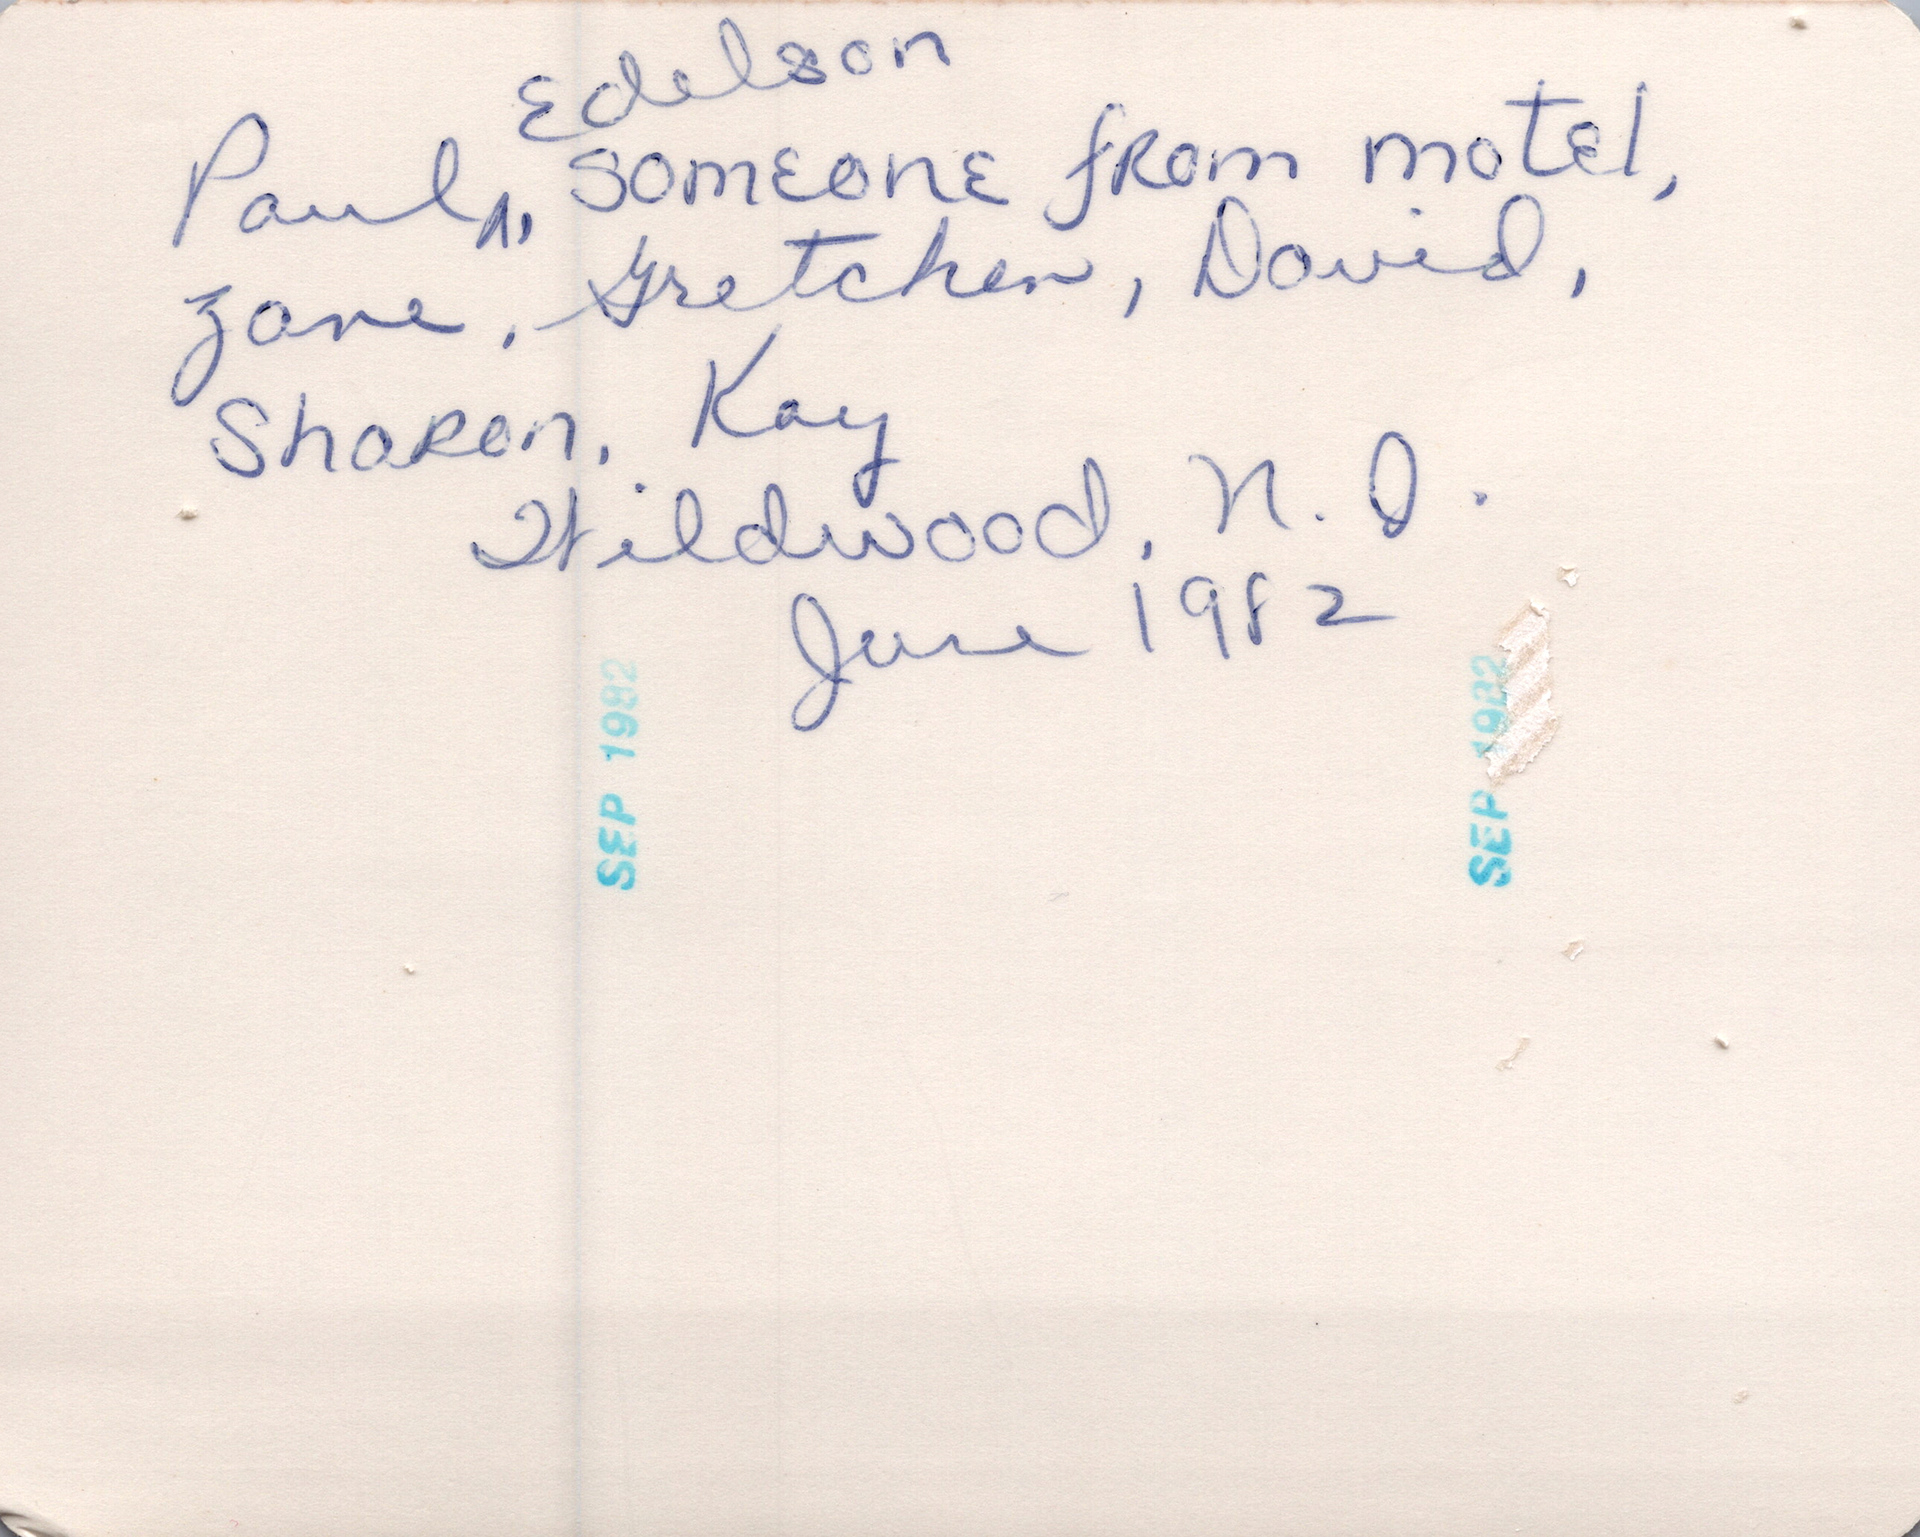 Edelson
Paul ^, someone from motel,
Zane, Gretchen, David,
Sharon, Kay
Wildwood, N.J.
June 1982
SEP 1982
SEP 1982